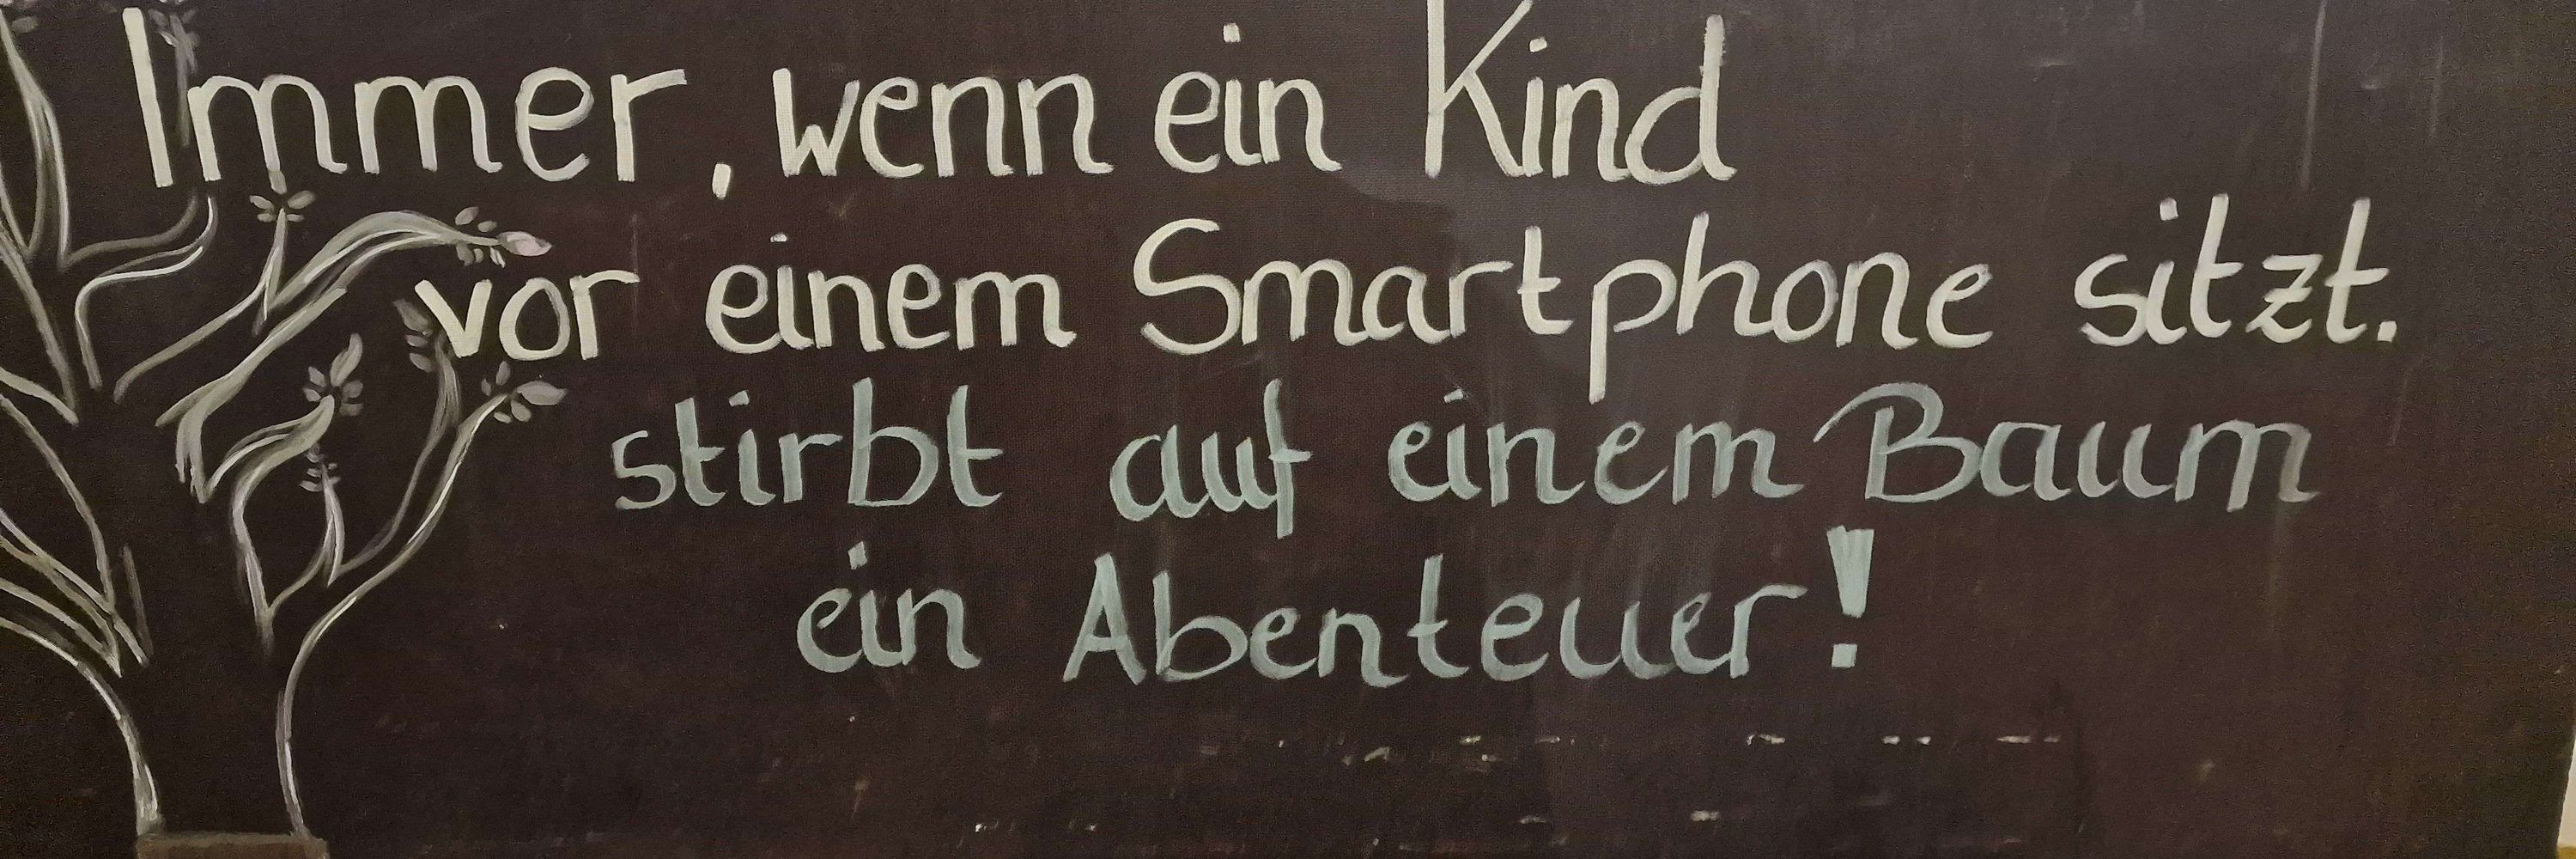 Immer, wenn ein Kind
vor einem Smartphone sitzt.
stirbt auf einem Baum
ein Abenteuer!